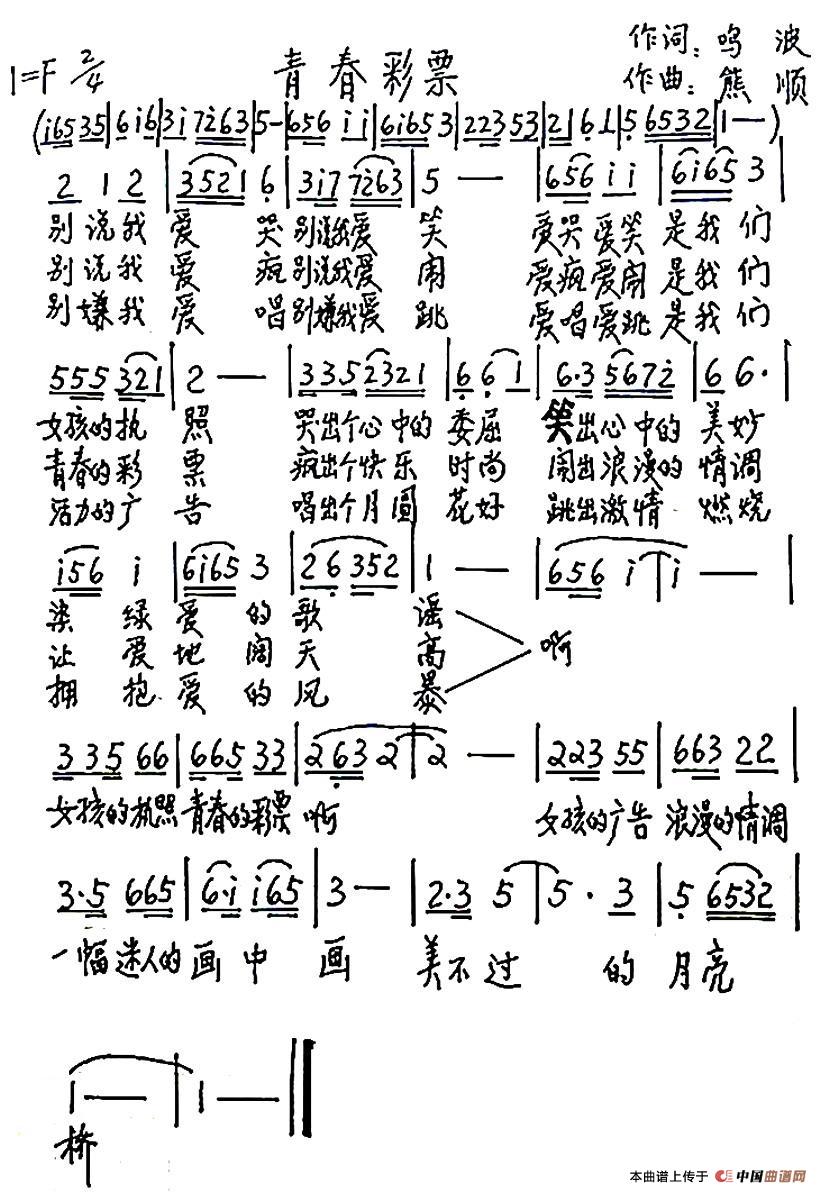 作词：鸣波
1=F 2/4 青春彩票 作曲：熊顺
(i6535|6i6|3i7i63|5-|656ii|6i653|22353|2161|56532|1—)
2 1 2|3521 6|3i7 7i63|5 —|656 i i|6i65 3|
别说我爱哭别说我爱笑 爱哭爱笑是我们
别说我爱疯别说我爱闹 爱疯爱闹是我们
别嫌我爱唱别嫌我爱跳 爱唱爱跳是我们
555 321|2 —|335 2321|6·6 1|6·3 567i|6 6·|
女孩的执照 哭出个心中的委屈 笑出心中的美妙
青春的彩票 疯出个快乐时尚 闹出浪漫的情调
活力的广告 唱出个月圆花好 跳出激情燃烧
i56 i|6i65 3|26 352|1 —|656 i|i —|
染绿爱的歌谣
让爱地阔天高 啊
拥抱爱的风暴
335 66|665 33|263 2|2 —|223 55|663 22|
女孩的执照青春的彩票啊 女孩的广告浪漫的情调
3·5 665|6·i i65|3—|2·3 5|5· 3|5 6532|
一幅迷人的画中画 美不过的月亮
1—|1—‖
桥
本曲谱上传于 中国曲谱网